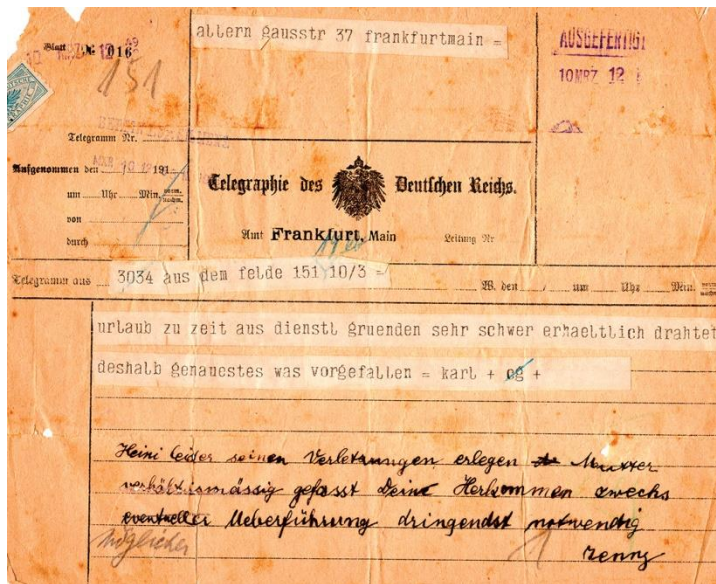 Blatt № 016
151
allern gausstr 37 frankfurtmain =
AUSGEFERTIGT
10 MRZ 12
Telegramm Nr.
Aufgenommen den 191
um Uhr Min. vorm. nachm.
von
durch
Telegraphie des Deutschen Reichs.
Amt Frankfurt, Main Leitung Nr
Telegramm aus 3034 aus dem felde 151 10/3 = W. den um Uhr Min.
urlaub zu zeit aus dienstl gruenden sehr schwer erhaeltlich drahtet
deshalb genauestes was vorgefallen = karl + cg +
Heini leider seinen Verletzungen erlegen Mutter
verhältnismässig gefasst Deine Herkommen zwecks
eventueller Ueberführung dringendst notwendig
möglicher
Jenny